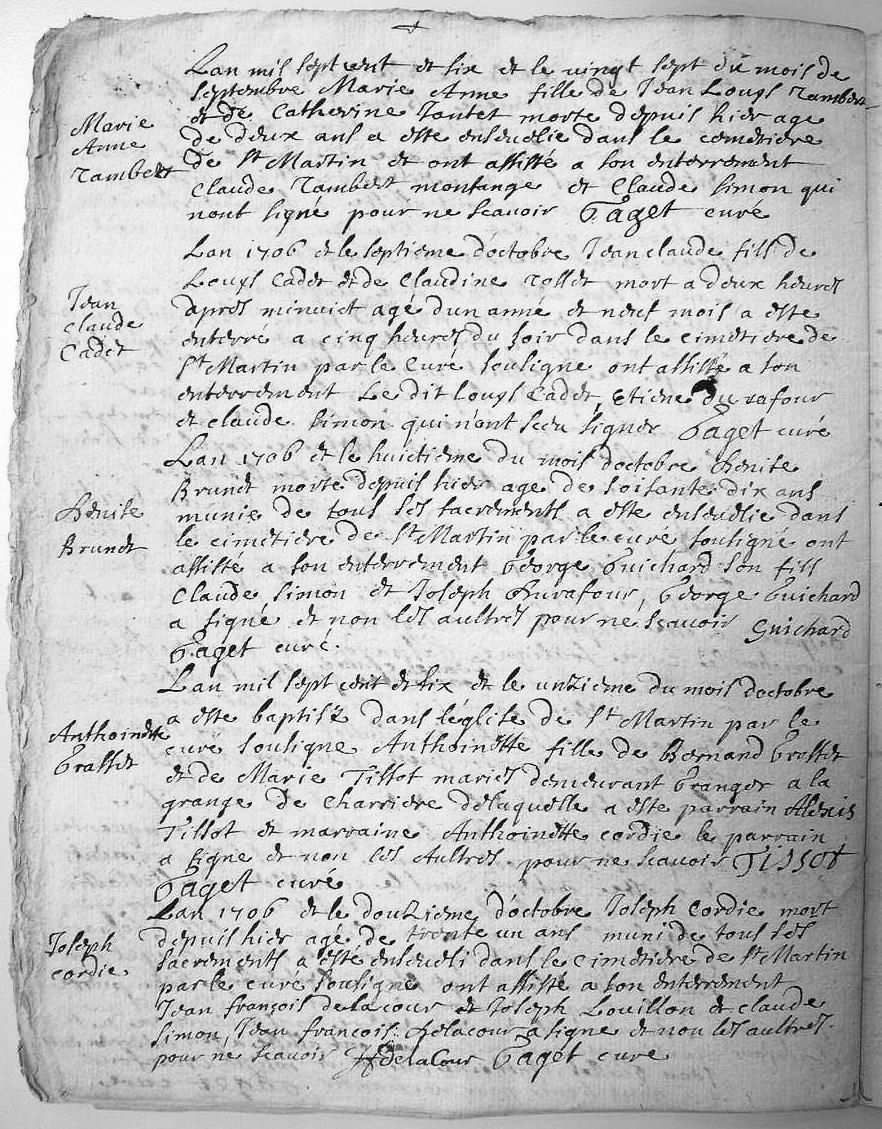 Lan mil sept cent et six et le vingt sept du mois de
septembre Marie Anne fille de Jean Louys Rambert
Marie
Anne
Rambert
et de Catherine Toutet morte depuis hier age
de deux ans a este ensevelie dans le cemetiere
de St Martin et ont assisté a son enterrement
Claude Rambert montange et Claude Simon qui
nont signé pour ne scavoir Paget curé
Lan 1706 et le septieme doctobre Jean claude fils de
Louys Cadet et de Claudine rosset mort a deux heures
Jean
Claude
Cadet
apres minuict agé dun anné et neuf mois a este
enterre a cinq heures du soir dans le cimetiere de
St Martin par le Curé sousigne ont assisté a son
enterrement Le dit Louys Cadet, Etiene du rafour
et claude Simon qui n'ont sceu signer Paget curé
Lan 1706 et le huictieme du mois doctobre Benite
Brunet morte depuis hier age de soisante dix ans
Benite
Brunet
munie de tous ses sacrements a este ensevelie dans
le cimetiere de St Martin par le curé soussigne ont
assisté a son enterrement George Guichard son fils
Claude Simon et Joseph Durafour, George Guichard
a signé et non les aultres pour ne scavoir Guichard
Paget curé.
Lan mil sept cent et six et le unzieme du mois doctobre
Anthoinette
Grasset
a este baptisé dans léglise de St Martin par le
curé sousigne Anthoinette fille de Bernand Grosset
et de Marie Tissot mariés demeurant Granger a la
grange de Charriere delaquelle a este parrain Alexis
Tissot et marraine Anthoinette cordie le parrain
a signe et non les Aultres pour ne scavoir Tissot
Paget curé
Lan 1706 et le douzieme d'octobre Joseph Cordie mort
Joseph
Cordie
depuis hier agé de trente un ans muni de tous ses
sacrements a esté enseveli dans le cimetiere de St Martin
par le curé sousigne ont assisté a son enterrement
Jean françois delacour et Joseph Louillon et claude
Simon, Jean francois Delacour a signe et non les aultres.
pour ne scavoir JfdelaCour Paget cure